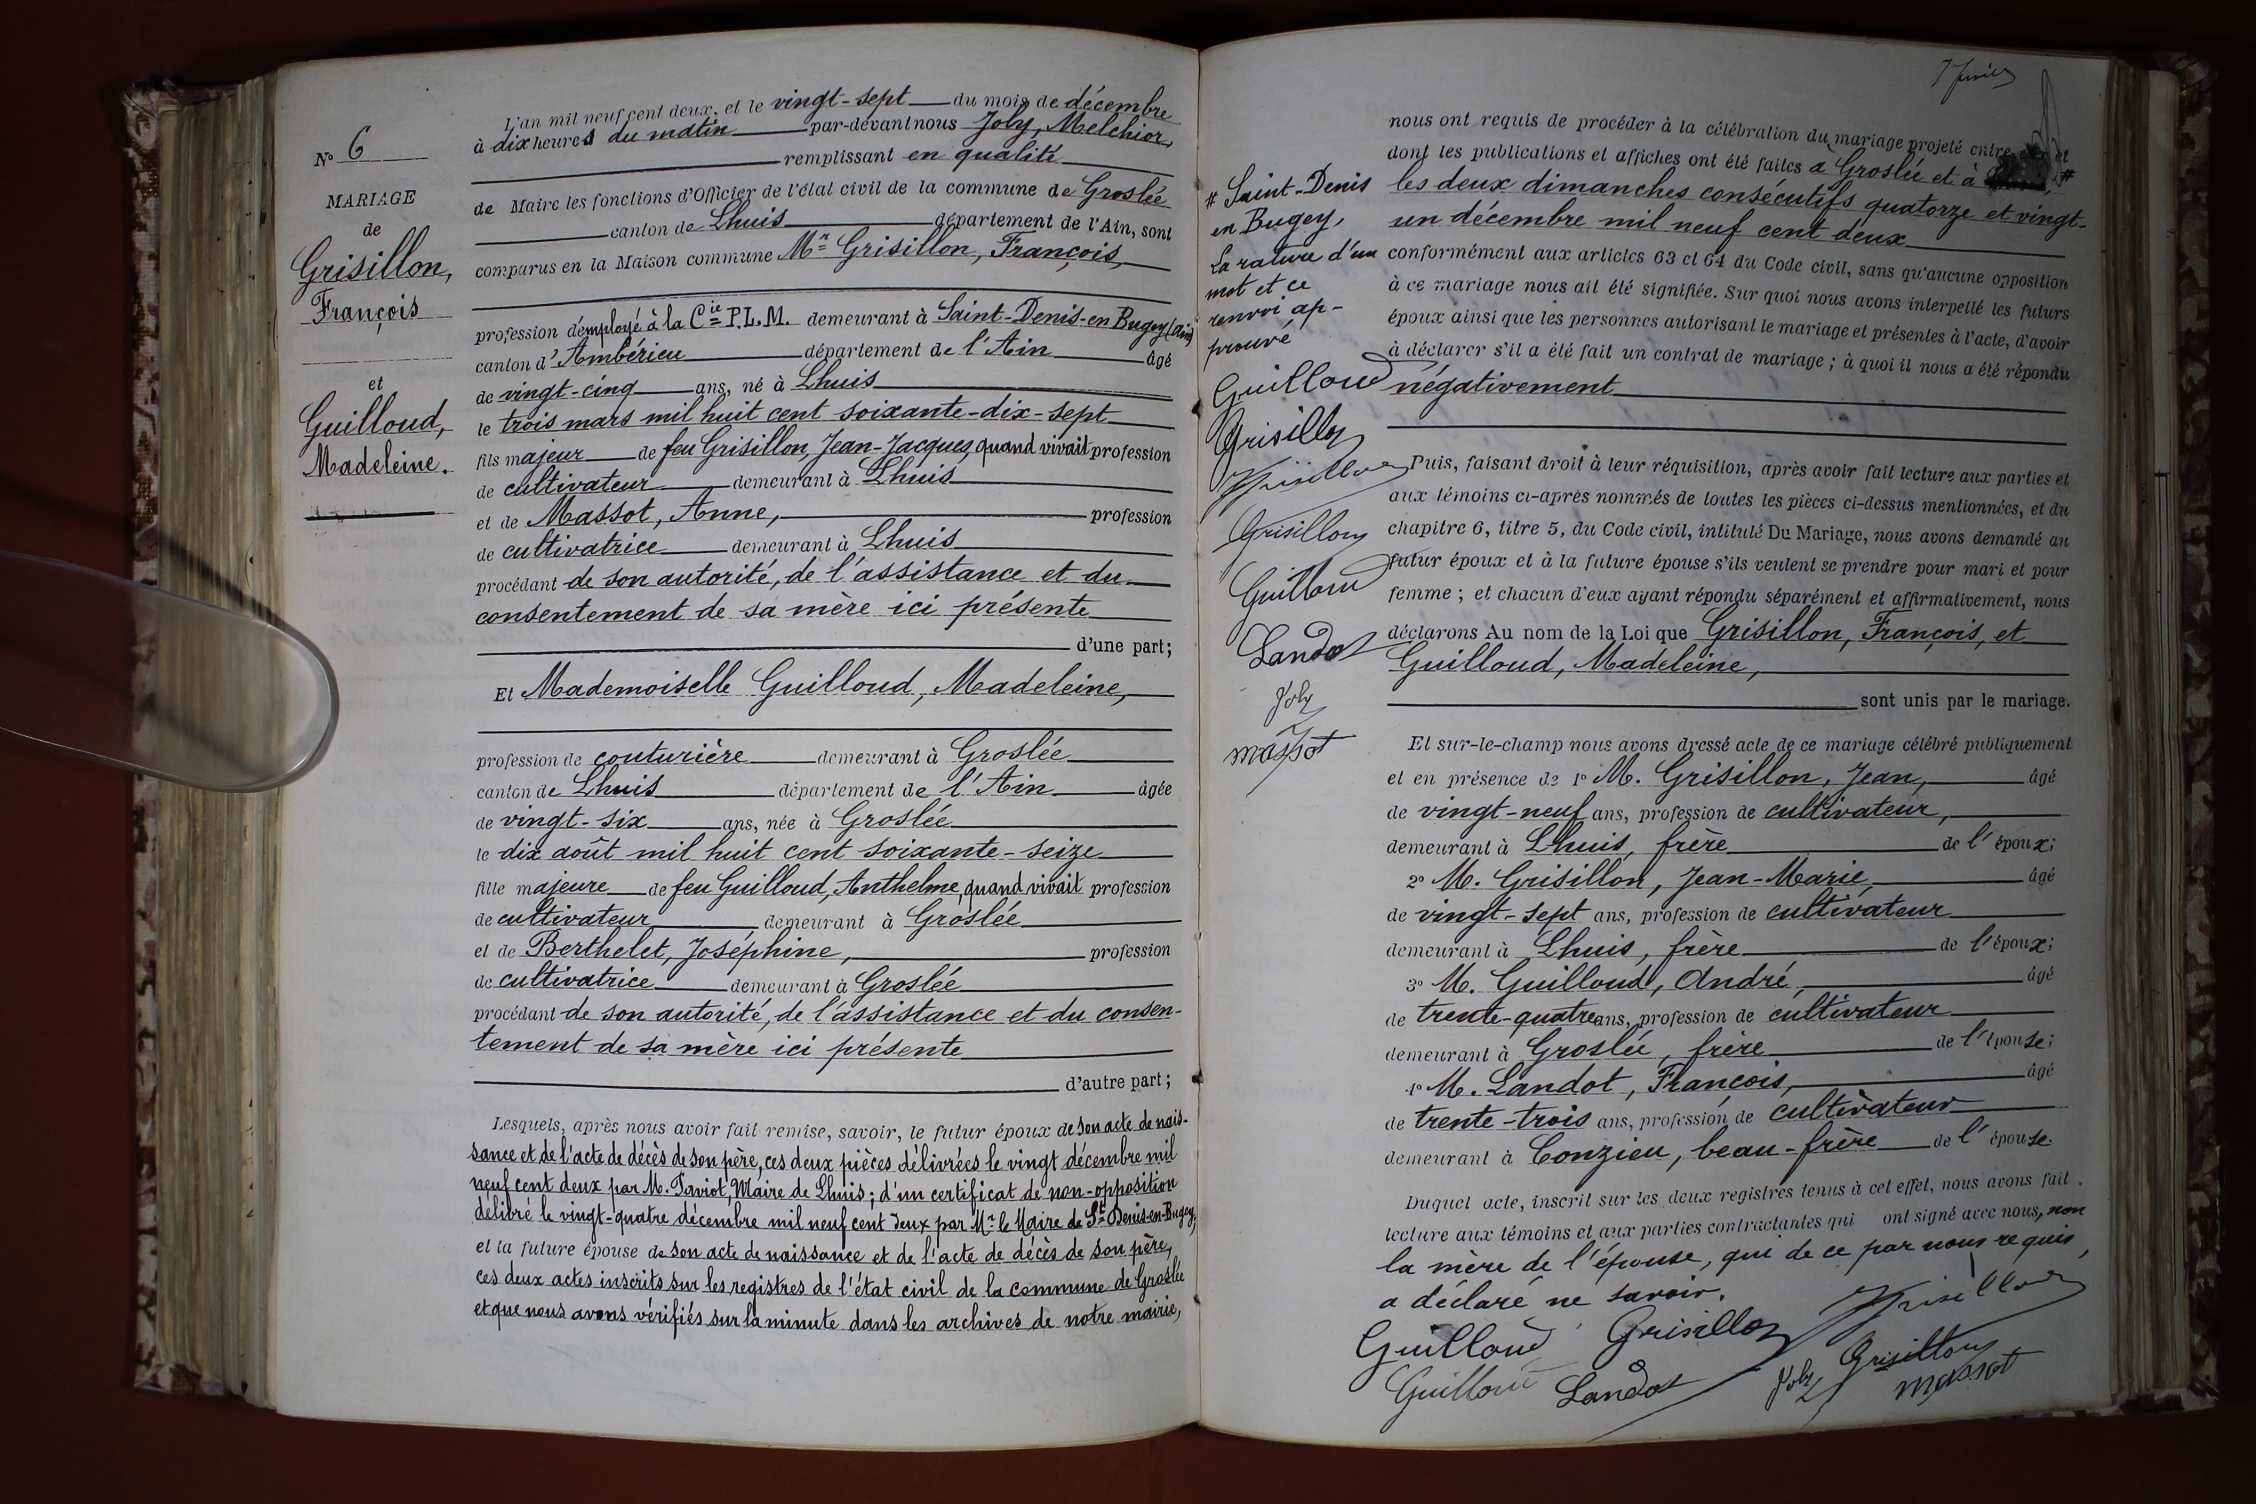 N° 6
MARIAGE
de
Grisillon,
François
et
Guilloud,
Madeleine.
L'an mil neuf cent deux, et le vingt-sept du mois de décembre
à dix heures du matin par-devant nous Joly, Melchior,
remplissant en qualité
de Maire les fonctions d'Officier de l'état civil de la commune de Groslée
canton de Lhuis département de l'Ain, sont
comparus en la Maison commune Mr Grisillon, François,
profession d'employé à la Cie P.L.M. demeurant à Saint-Denis-en Bugey (Ain)
canton d'Ambérieu département de l'Ain âgé
de vingt-cinq ans, né à Lhuis
le trois mars mil huit cent soixante-dix-sept
fils majeur de feu Grisillon, Jean-Jacques, quand vivait profession
de cultivateur demeurant à Lhuis
et de Massot, Anne, profession
de cultivatrice demeurant à Lhuis
procédant de son autorité, de l'assistance et du
consentement de sa mère ici présente
d'une part;
Et Mademoiselle Guilloud, Madeleine,
profession de couturière demeurant à Groslée
canton de Lhuis département de l'Ain âgée
de vingt-six ans, née à Groslée
le dix août mil huit cent soixante-seize
fille majeure de feu Guilloud, Anthelme, quand vivait profession
de cultivateur demeurant à Groslée
et de Berthelet, Joséphine, profession
de cultivatrice demeurant à Groslée
procédant de son autorité, de l'assistance et du consen-
tement de sa mère ici présente
d'autre part;
Lesquels, après nous avoir fait remise, savoir, le futur époux de son acte de nais-
sance et de l'acte de décès de son père, ces deux pièces délivrées le vingt décembre mil
neuf cent deux par M. Taviot, Maire de Lhuis; d'un certificat de non-opposition
délibré le vingt-quatre décembre mil neuf cent deux par Mr le Maire de St Denis-en-Bugey;
et la future épouse de son acte de naissance et de l'acte de décès de son père,
ces deux actes inscrits sur les registres de l'état civil de la commune de Groslée
et que nous avons vérifiés sur la minute dans les archives de notre mairie,
nous ont requis de procéder à la célébration du mariage projeté entre eux et
dont les publications et affiches ont été faites a Groslée et à #
les deux dimanches consécutifs quatorze et vingt-
un décembre mil neuf cent deux
conformément aux articles 63 et 64 du Code civil, sans qu'aucune opposition
à ce mariage nous ait été signifiée. Sur quoi nous avons interpellé les futurs
époux ainsi que les personnes autorisant le mariage et présentes à l'acte, d'avoir
à déclarer s'il a été fait un contrat de mariage; à quoi il nous a été répondu
négativement
# Saint-Denis
en Bugey,
La rature d'un
mot et ce
renvoi ap-
prouvé
Guilloud
Grisillon
Grisillon
Grisillon
Guilloud
Landot
Joly
massot
Puis, faisant droit à leur réquisition, après avoir fait lecture aux parties et
aux témoins ci-après nommés de toutes les pièces ci-dessus mentionnées, et du
chapitre 6, titre 5, du Code civil, intitulé Du Mariage, nous avons demandé au
futur époux et à la future épouse s'ils veulent se prendre pour mari et pour
femme; et chacun d'eux ayant répondu séparément et affirmativement, nous
déclarons Au nom de la Loi que Grisillon, François, et
Guilloud, Madeleine,
sont unis par le mariage.
Et sur-le-champ nous avons dressé acte de ce mariage célébré publiquement
et en présence de 1° M. Grisillon, Jean, âgé
de vingt-neuf ans, profession de cultivateur,
demeurant à Lhuis, frère de l'époux;
2° M. Grisillon, Jean-Marie, âgé
de vingt-sept ans, profession de cultivateur
demeurant à Lhuis, frère de l'époux;
3° M. Guilloud, André, âgé
de trente-quatre ans, profession de cultivateur
demeurant à Groslée, frère de l'épouse;
4° M. Landot, François, âgé
de trente-trois ans, profession de cultivateur
demeurant à Conzieu, beau-frère de l'épouse.
Duquel acte, inscrit sur les deux registres tenus à cet effet, nous avons fait
lecture aux témoins et aux parties contractantes qui ont signé avec nous, non
la mère de l'épouse, qui de ce par nous requis,
a déclaré ne savoir.
Guilloud Grisillon Grisillon
Guilloud Landot Joly Grisillon
massot